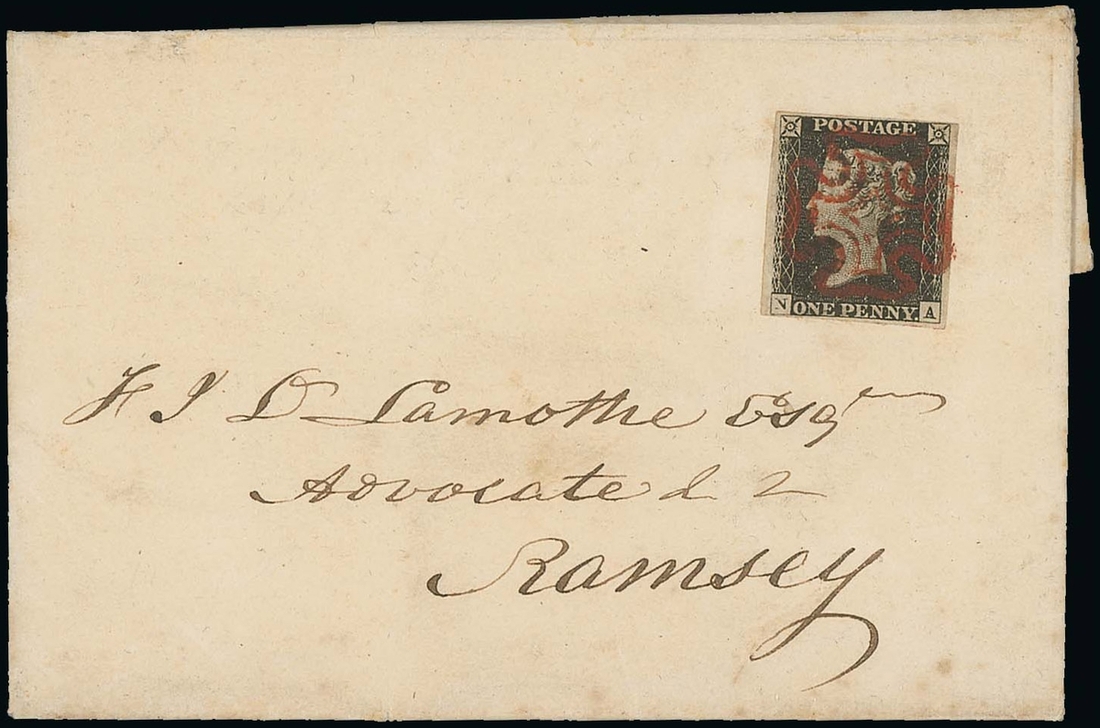 POSTAGE
N ONE PENNY. A
F J D Lamothe Esqr
Advocate &c &c
Ramsey